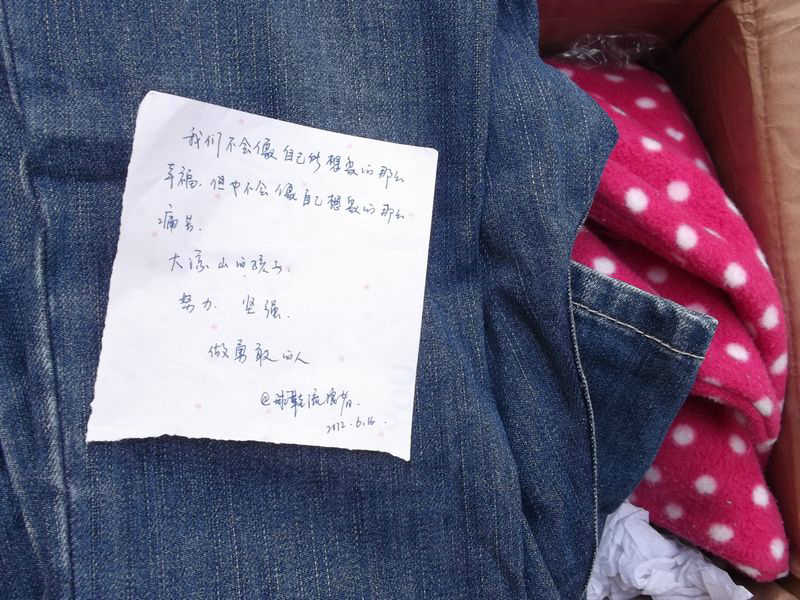 我们不会像自己所想象的那么
幸福.但也不会像自己想象的那么
痛苦.
大凉山的孩子.
努力 坚强.
做勇敢的人
@ 流浪者.
2012.6.16.